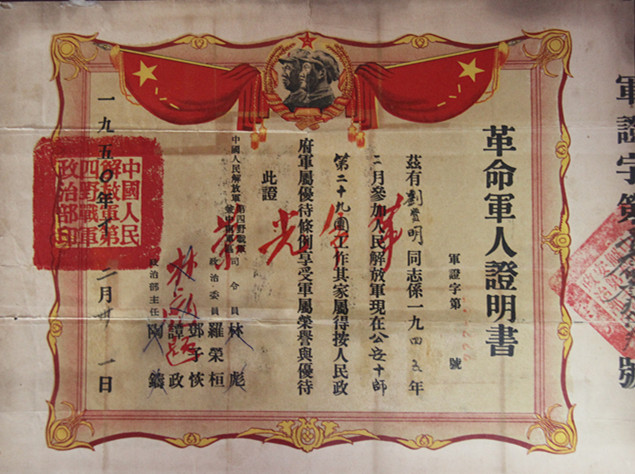 革命軍人證明書
軍證字第 號
茲有劉豐明同志係一九四五年
二月參加人民解放軍現在公安十師
第二十九團工作其家屬得按人民政
府軍屬優待條例享受軍屬榮譽與優待
此證
中國人民解放軍第四野戰軍
司令員 林彪
政治委員 羅榮桓
鄧子恢
譚政
政治部主任 陶鑄
一九五〇年十二月卅一日
中國人民
解放軍第
四野戰軍
政治部印
革命光榮
軍證字第 號